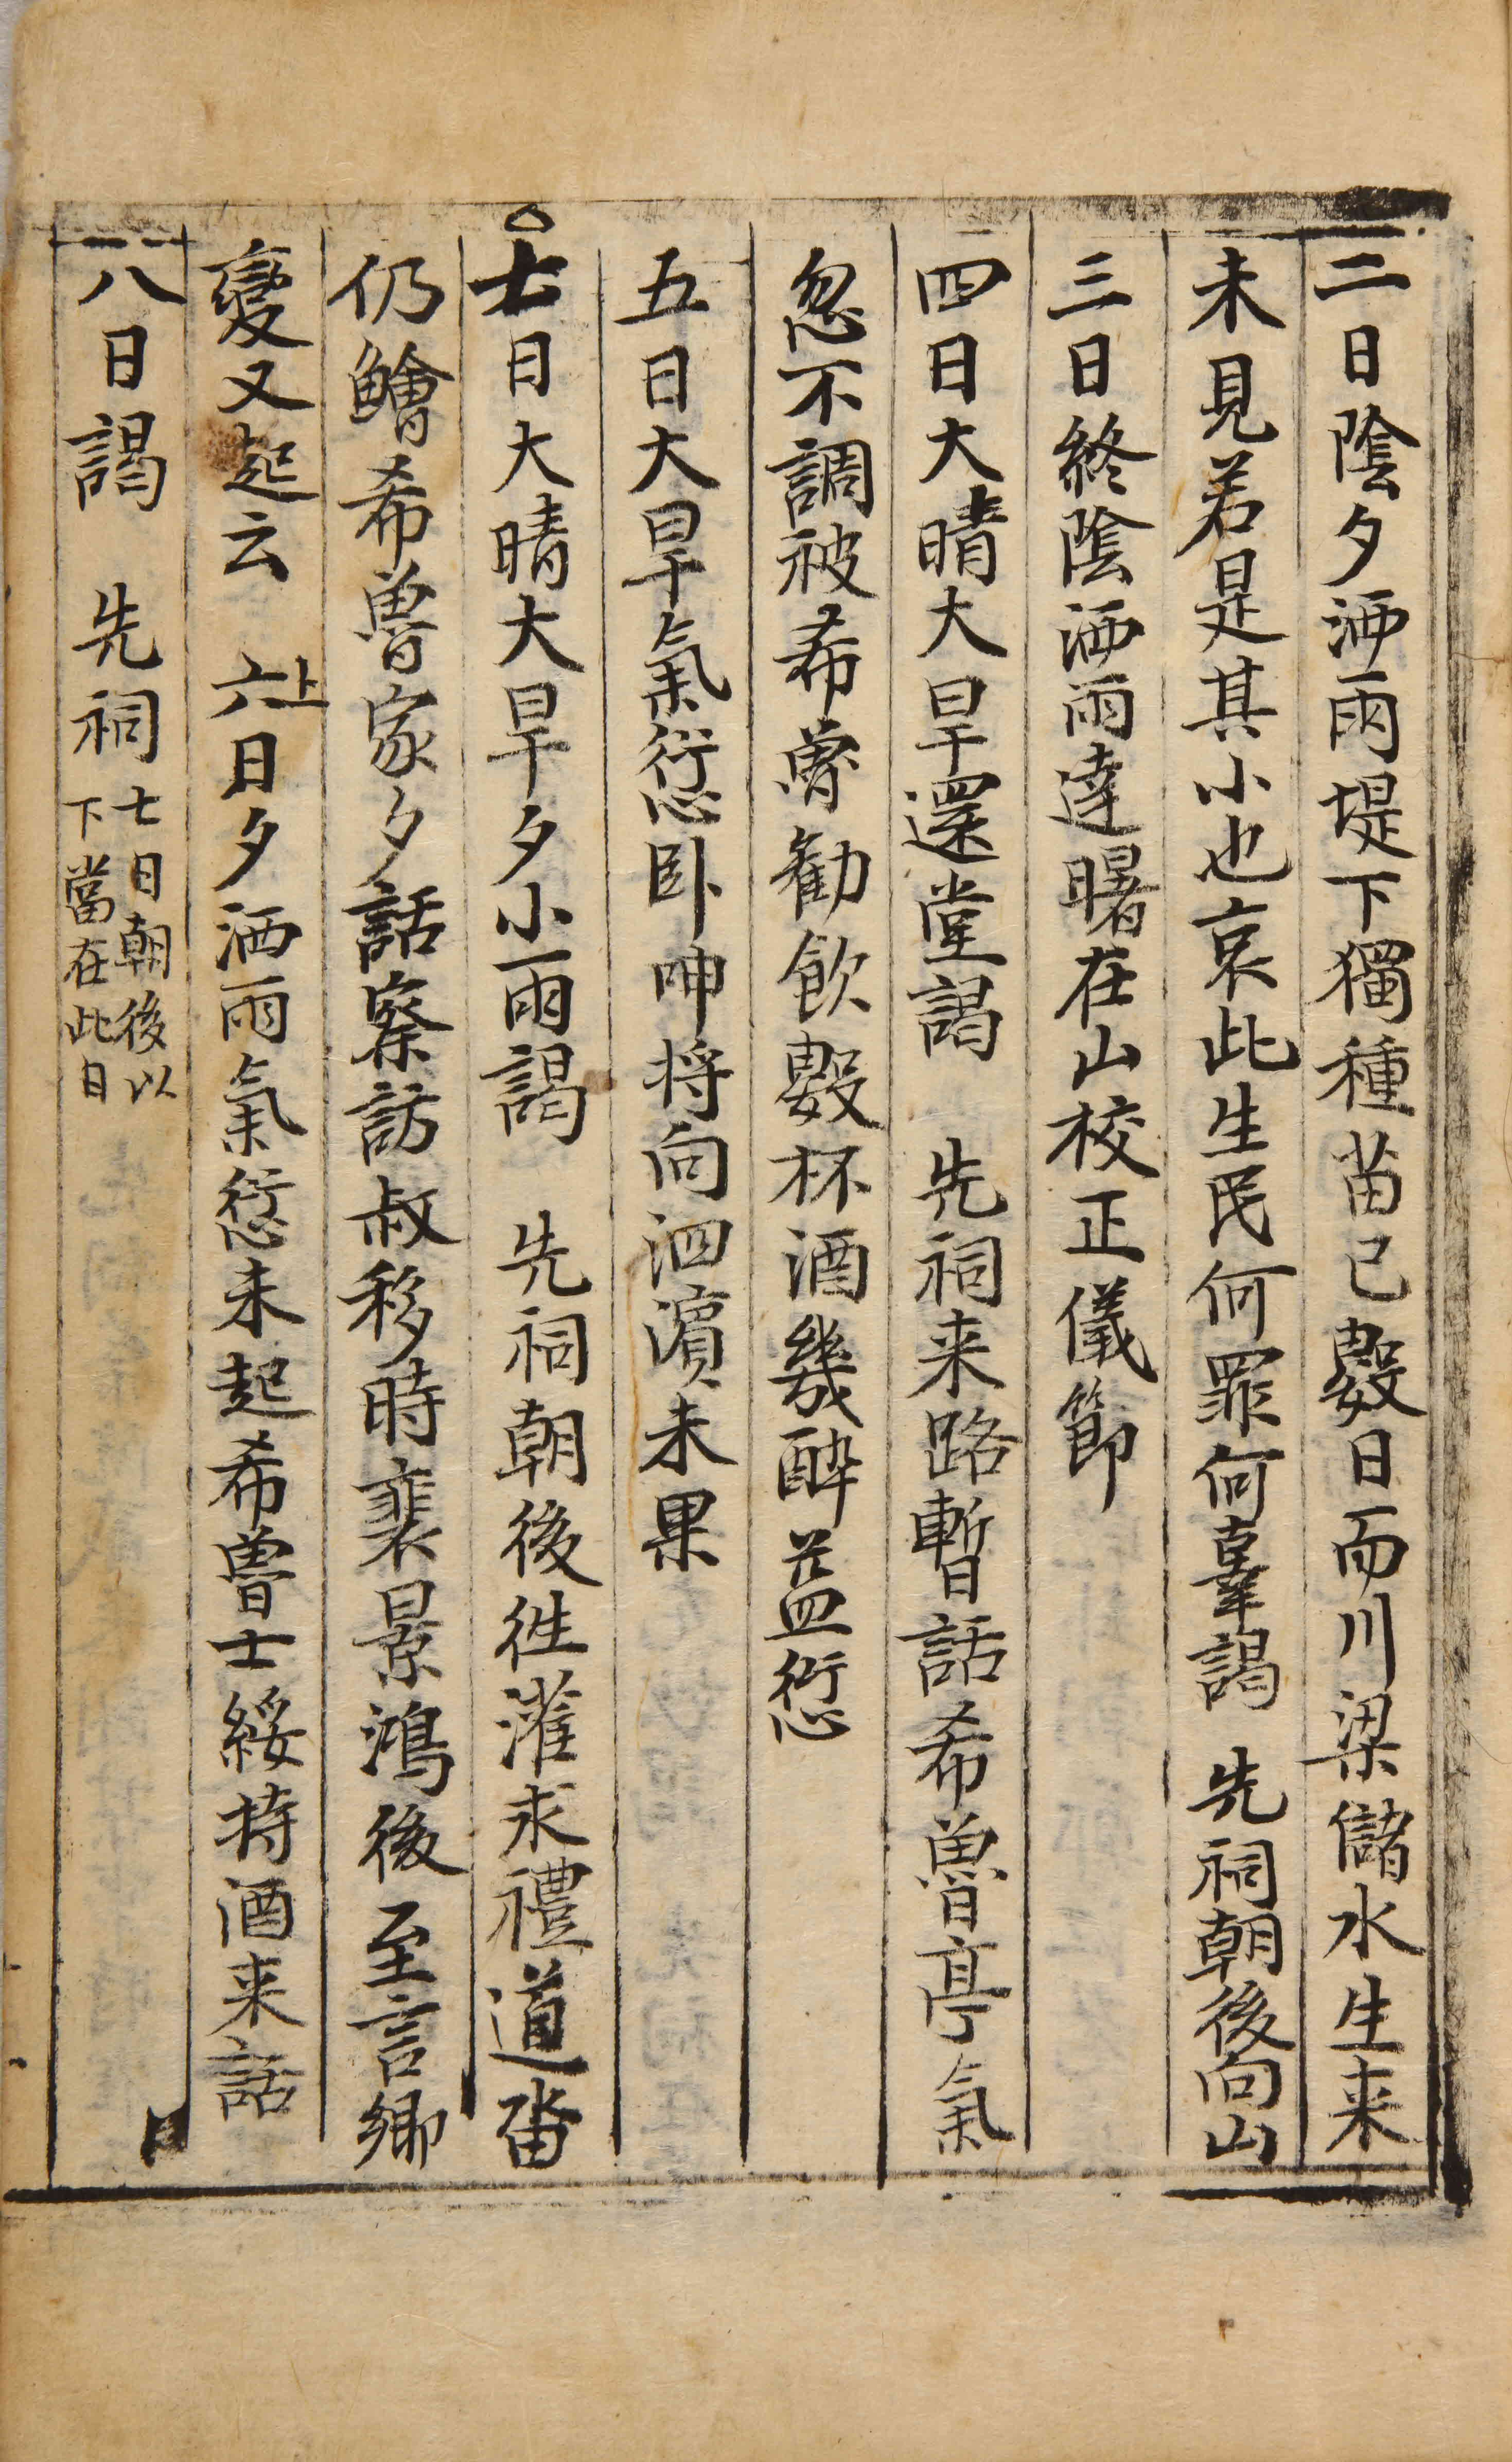 二日陰夕洒雨堤下獨種苗已數日而川梁儲水生来
未見若是其小也哀此生民何罪何辜謁　先祠朝後向山
三日終陰洒雨達曙在山校正儀節
四日大晴大旱還堂謁　先祠来路暫話希魯亭氣
忽不調被希魯勸飮數杯酒幾醉益愆
五日大旱氣愆卧呻将向泗濵未果
七日大晴大旱夕小雨謁　先祠朝後徃灌求禮道畓
仍鱠希魯家夕話察訪叔移時裴景鴻後至言鄉
變又起云　六上日夕洒雨氣愆未起希魯士綏持酒来話
八日謁　先祠七日朝後以
下當在此日